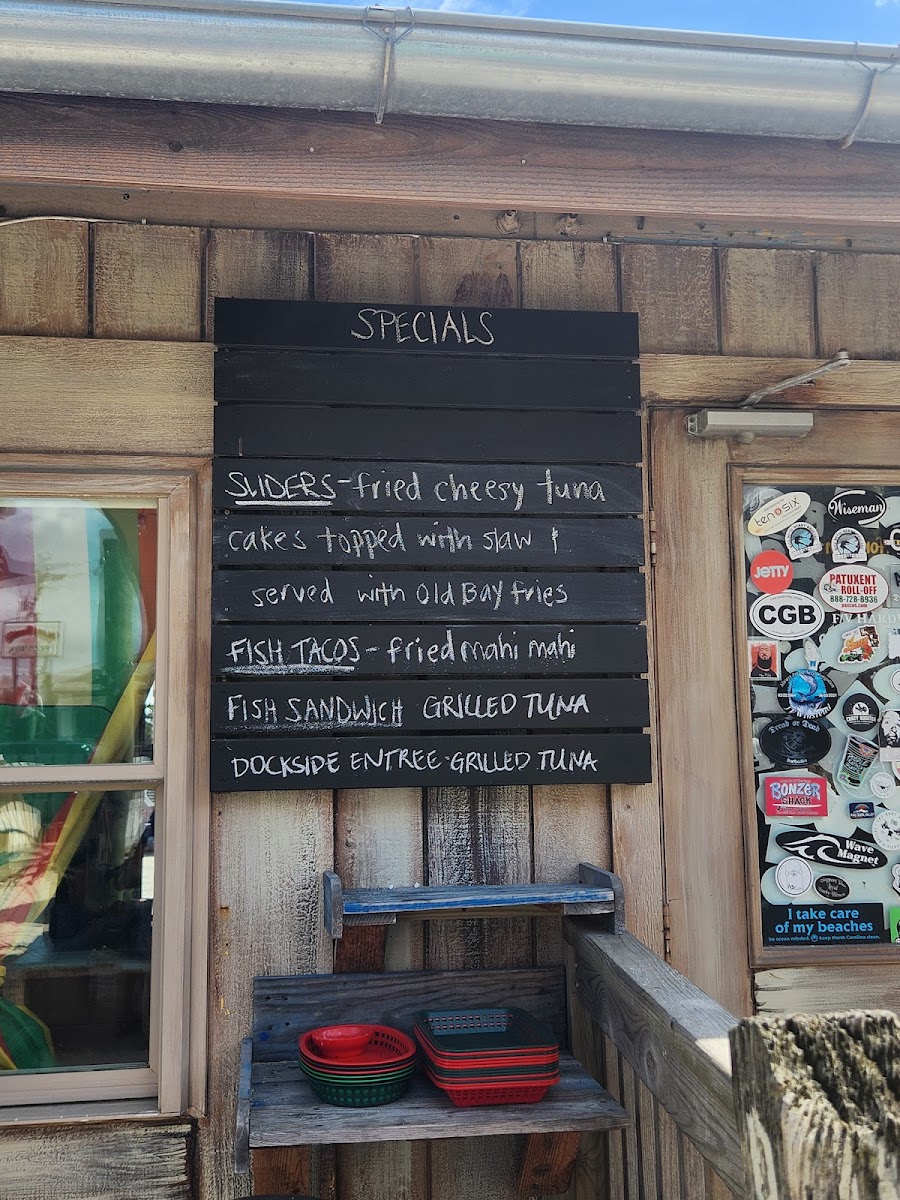 SPECIALS
SLIDERS-fried cheesy tuna
cakes topped with slaw &
served with Old Bay fries
FISH TACOS - fried mahi mahi
FISH SANDWICH GRILLED TUNA
DOCKSIDE ENTREE-GRILLED TUNA
tenosix
Wiseman
JETTY
PATUXENT
ROLL-OFF
888-728-8936
CGB
BONZER
SHACK
Wave
Magnet
I take care
of my beaches
be ocean minded. keep North Carolina clean.